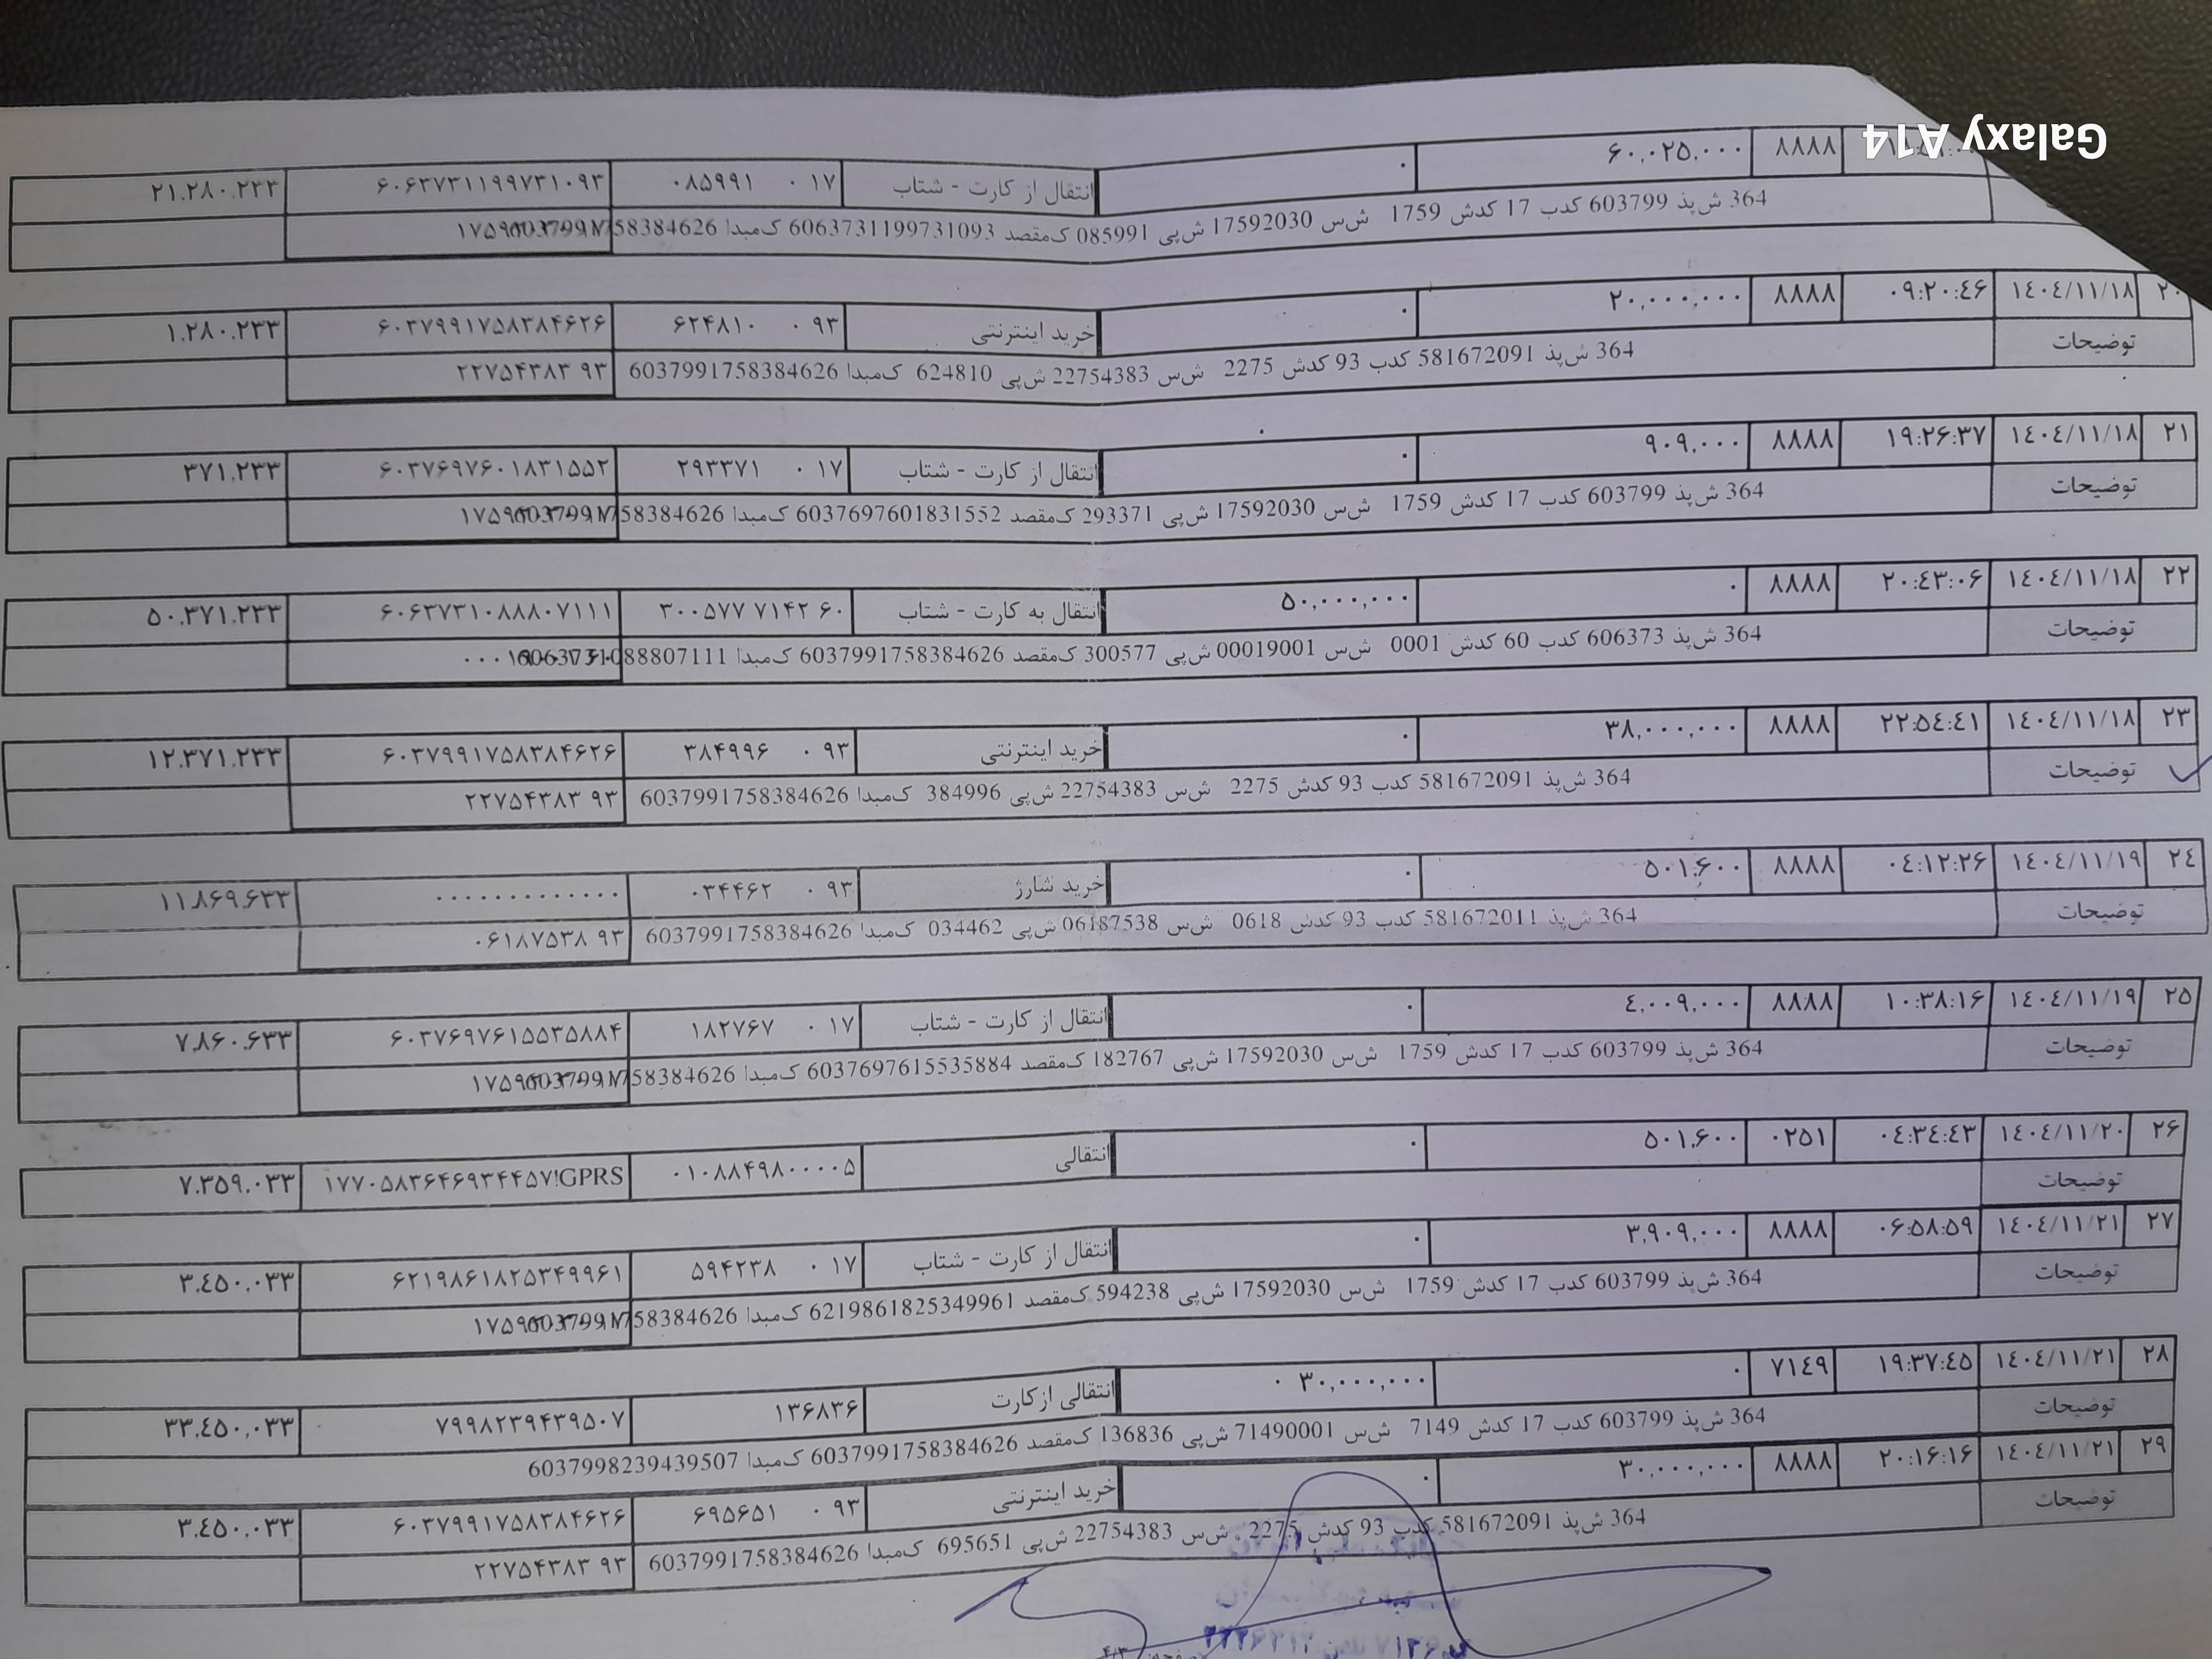 Galaxy A14
۶۰,۰۲۵,۰۰۰ ۸۸۸۸
۰ انتقال از کارت - شتاب ۱۷ ۰ ۰۸۵۹۹۱ ۶۰۶۳۷۳۱۱۹۹۷۳۱۰۹۳ ۲۱.۲۸۰.۲۳۳
364 ش‌پذ 603799 کدب 17 کدش 1759 ش‌س 17592030 ش‌پی 085991 ک‌مقصد 6063731199731093 ک‌مبدا
۲۰ ۱٤۰٤/۱۱/۱۸ ۰۹:۲۰:٤۶ ۸۸۸۸ ۲۰,۰۰۰,۰۰۰ ۰ خرید اینترنتی ۹۳ ۰ ۶۲۴۸۱۰ ۶۰۳۷۹۹۱۷۵۸۳۸۴۶۲۶ ۱.۲۸۰.۲۳۳
توضیحات 364 ش‌پذ 581672091 کدب 93 کدش 2275 ش‌س 22754383 ش‌پی 624810 ک‌مبدا 6037991758384626 ۲۲۷۵۴۳۸۳ ۹۳
۲۱ ۱٤۰٤/۱۱/۱۸ ۱۹:۲۶:۳۷ ۸۸۸۸ ۹۰۹,۰۰۰ ۰ انتقال از کارت - شتاب ۱۷ ۰ ۲۹۳۳۷۱ ۶۰۳۷۶۹۷۶۰۱۸۳۱۵۵۲ ۳۷۱.۲۳۳
توضیحات 364 ش‌پذ 603799 کدب 17 کدش 1759 ش‌س 17592030 ش‌پی 293371 ک‌مقصد 6037697601831552 ک‌مبدا
۲۲ ۱٤۰٤/۱۱/۱۸ ۲۰:٤۳:۰۶ ۸۸۸۸ ۰ ۵۰,۰۰۰,۰۰۰ انتقال به کارت - شتاب ۶۰ ۷۱۴۲ ۳۰۰۵۷۷ ۶۰۶۳۷۳۱۰۸۸۸۰۷۱۱۱ ۵۰.۳۷۱.۲۳۳
توضیحات 364 ش‌پذ 606373 کدب 60 کدش 0001 ش‌س 00019001 ش‌پی 300577 ک‌مقصد 6037991758384626 ک‌مبدا
۲۳ ۱٤۰٤/۱۱/۱۸ ۲۲:۵٤:٤۱ ۸۸۸۸ ۳۸,۰۰۰,۰۰۰ ۰ خرید اینترنتی ۹۳ ۰ ۳۸۴۹۹۶ ۶۰۳۷۹۹۱۷۵۸۳۸۴۶۲۶ ۱۲.۳۷۱.۲۳۳
توضیحات 364 ش‌پذ 581672091 کدب 93 کدش 2275 ش‌س 22754383 ش‌پی 384996 ک‌مبدا 6037991758384626 ۲۲۷۵۴۳۸۳ ۹۳
۲٤ ۱٤۰٤/۱۱/۱۹ ۰٤:۱۲:۲۶ ۸۸۸۸ ۵۰۱,۶۰۰ ۰ خرید شارژ ۹۳ ۰ ۰۳۴۴۶۲ ۰۰۰۰۰۰۰۰۰۰۰۰۰ ۱۱.۸۶۹.۶۳۳
توضیحات 364 ش‌پذ 581672011 کدب 93 کدش 0618 ش‌س 06187538 ش‌پی 034462 ک‌مبدا 6037991758384626 ۰۶۱۸۷۵۳۸ ۹۳
۲۵ ۱٤۰٤/۱۱/۱۹ ۱۰:۳۸:۱۶ ۸۸۸۸ ٤,۰۰۹,۰۰۰ ۰ انتقال از کارت - شتاب ۱۷ ۰ ۱۸۲۷۶۷ ۶۰۳۷۶۹۷۶۱۵۵۳۵۸۸۴ ۷.۸۶۰.۶۳۳
توضیحات 364 ش‌پذ 603799 کدب 17 کدش 1759 ش‌س 17592030 ش‌پی 182767 ک‌مقصد 6037697615535884 ک‌مبدا
۲۶ ۱٤۰٤/۱۱/۲۰ ۰٤:۳٤:٤۳ ۰۲۵۱ ۵۰۱,۶۰۰ ۰ انتقالی ۰۱۰۸۸۴۹۸۰۰۰۰۵ ۱۷۷۰۵۸۳۶۴۶۹۳۴۴۵۷!GPRS ۷.۳۵۹.۰۳۳
توضیحات
۲۷ ۱٤۰٤/۱۱/۲۱ ۰۶:۵۸:۵۹ ۸۸۸۸ ۳,۹۰۹,۰۰۰ ۰ انتقال از کارت - شتاب ۱۷ ۰ ۵۹۴۲۳۸ ۶۲۱۹۸۶۱۸۲۵۳۴۹۹۶۱ ۳.٤۵۰.۰۳۳
توضیحات 364 ش‌پذ 603799 کدب 17 کدش 1759 ش‌س 17592030 ش‌پی 594238 ک‌مقصد 6219861825349961 ک‌مبدا
۲۸ ۱٤۰٤/۱۱/۲۱ ۱۹:۳۷:٤۵ ۷۱٤۹ ۰ ۳۰,۰۰۰,۰۰۰ انتقالی ازکارت ۱۳۶۸۳۶ ۷۹۹۸۲۳۹۴۳۹۵۰۷ ۳۳.٤۵۰.۰۳۳
توضیحات 364 ش‌پذ 603799 کدب 17 کدش 7149 ش‌س 71490001 ش‌پی 136836 ک‌مقصد 6037991758384626 ک‌مبدا 6037998239439507
۲۹ ۱٤۰٤/۱۱/۲۱ ۲۰:۱۶:۱۶ ۸۸۸۸ ۳۰,۰۰۰,۰۰۰ ۰ خرید اینترنتی ۹۳ ۰ ۶۹۵۶۵۱ ۶۰۳۷۹۹۱۷۵۸۳۸۴۶۲۶ ۳.٤۵۰.۰۳۳
توضیحات 364 ش‌پذ 581672091 کدب 93 کدش 2275 ش‌س 22754383 ش‌پی 695651 ک‌مبدا 6037991758384626 ۲۲۷۵۴۳۸۳ ۹۳